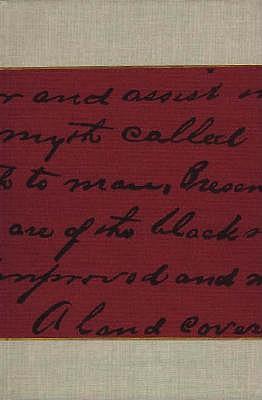 r and assist
myth called
to man, Presen
are of the black
improved and
A land cover